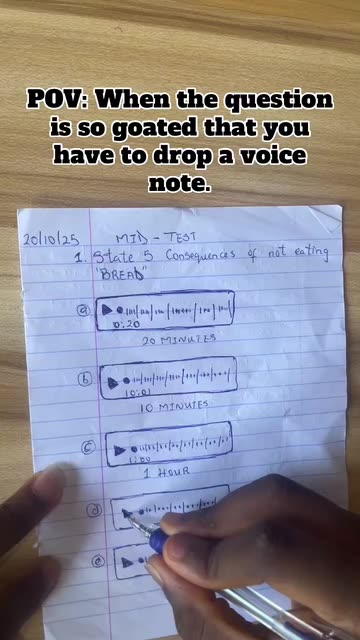 POV: When the question
is so goated that you
have to drop a voice
note.
20/10/25 MID - TEST
1. State 5 Consequences of not eating
"BREAD"
a
0:20
20 MINUTES
b
10:01
10 MINUTES
c
1:00
1 HOUR
d
e